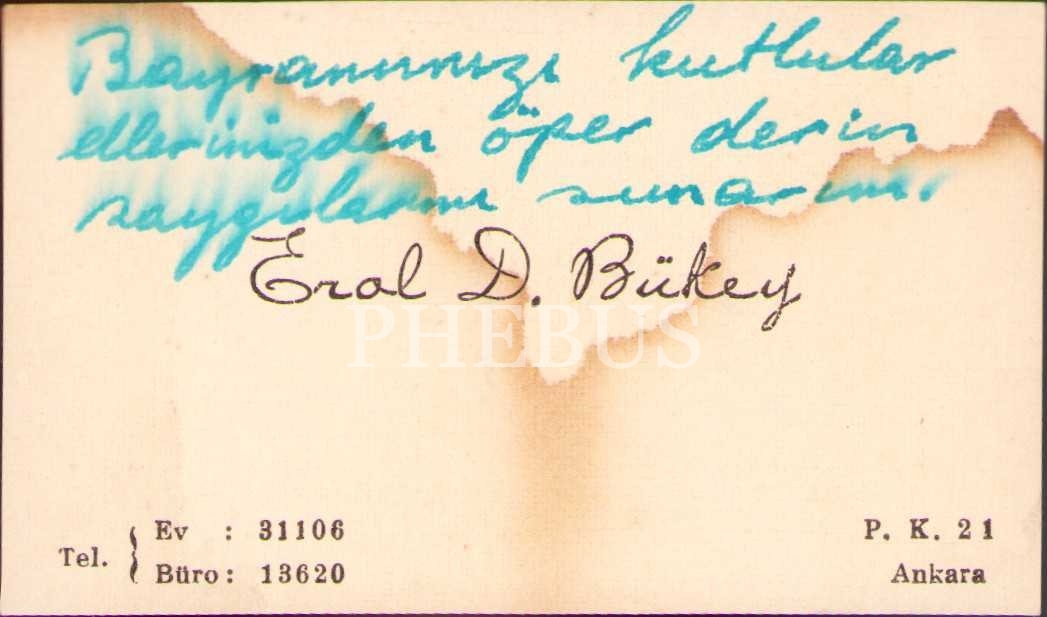 Bayramınızı kutlular
ellerinizden öper derin
saygılarımı sunarım.
Erol D. Bükey
PHEBUS
Tel. { Ev : 31106
Büro : 13620
P. K. 21
Ankara